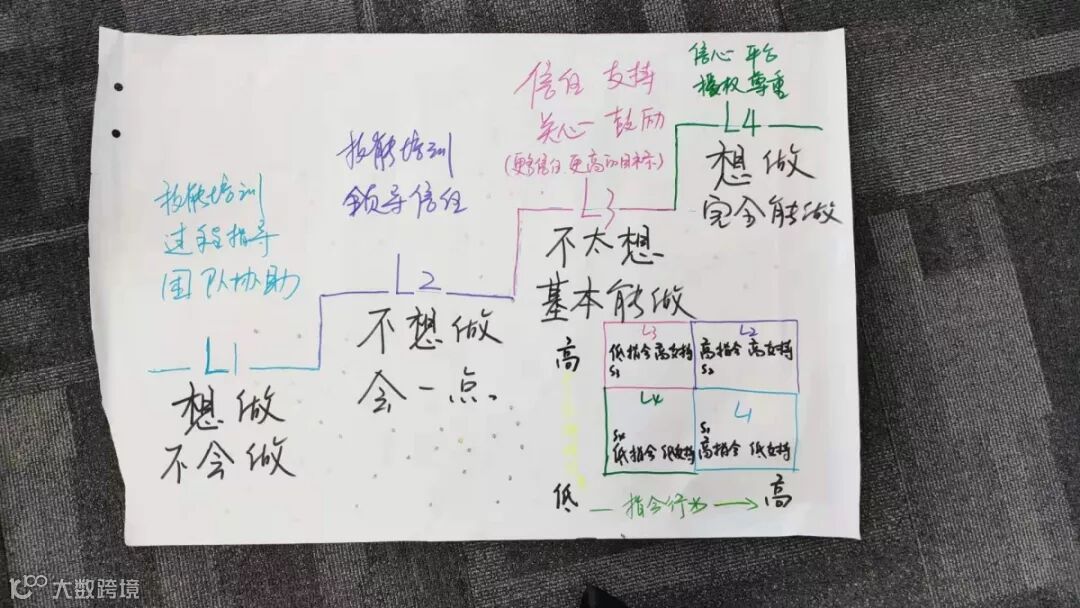 技能培训
过程指导
团队协助
L1
想做
不会做
技能培训
领导信任
L2
不想做
会一点。
信任 支持
关心 鼓励
(更多信任 更高的目标)
L3
不太想
基本能做
信心 平台
授权 尊重
L4
想做
完全能做
高
L3
低指令 高支持
S3
L2
高指令 高支持
S2
L4
S4
低指令 低支持
L1
S1
高指令 低支持
低
指令行为
高
大数跨境